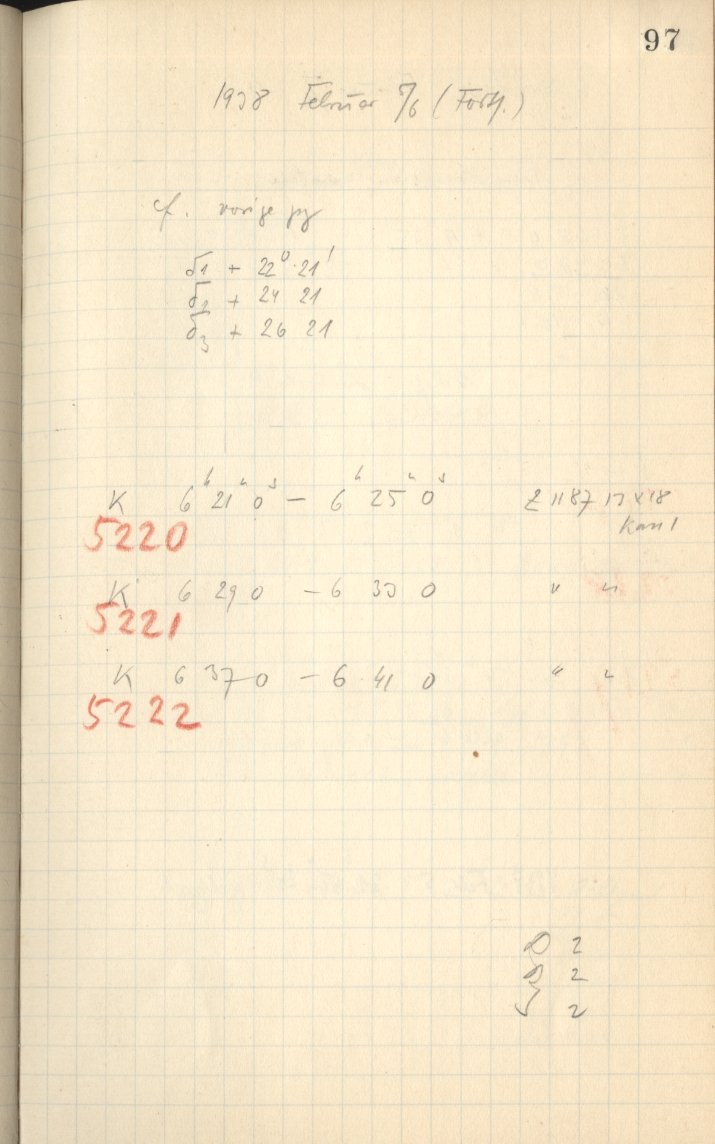 97
1938 Februar 5/6 (Forts.)
cf. vorige pg
δ1 + 22° 21'
δ2 + 24 21
δ3 + 26 21
K 6h 21m 0s – 6h 25m 0s Z 1187 17 x 18
Kass 1
5220
K 6 29 0 – 6 33 0 " "
5221
K 6 37 0 – 6 41 0 " "
5222
2
2
2